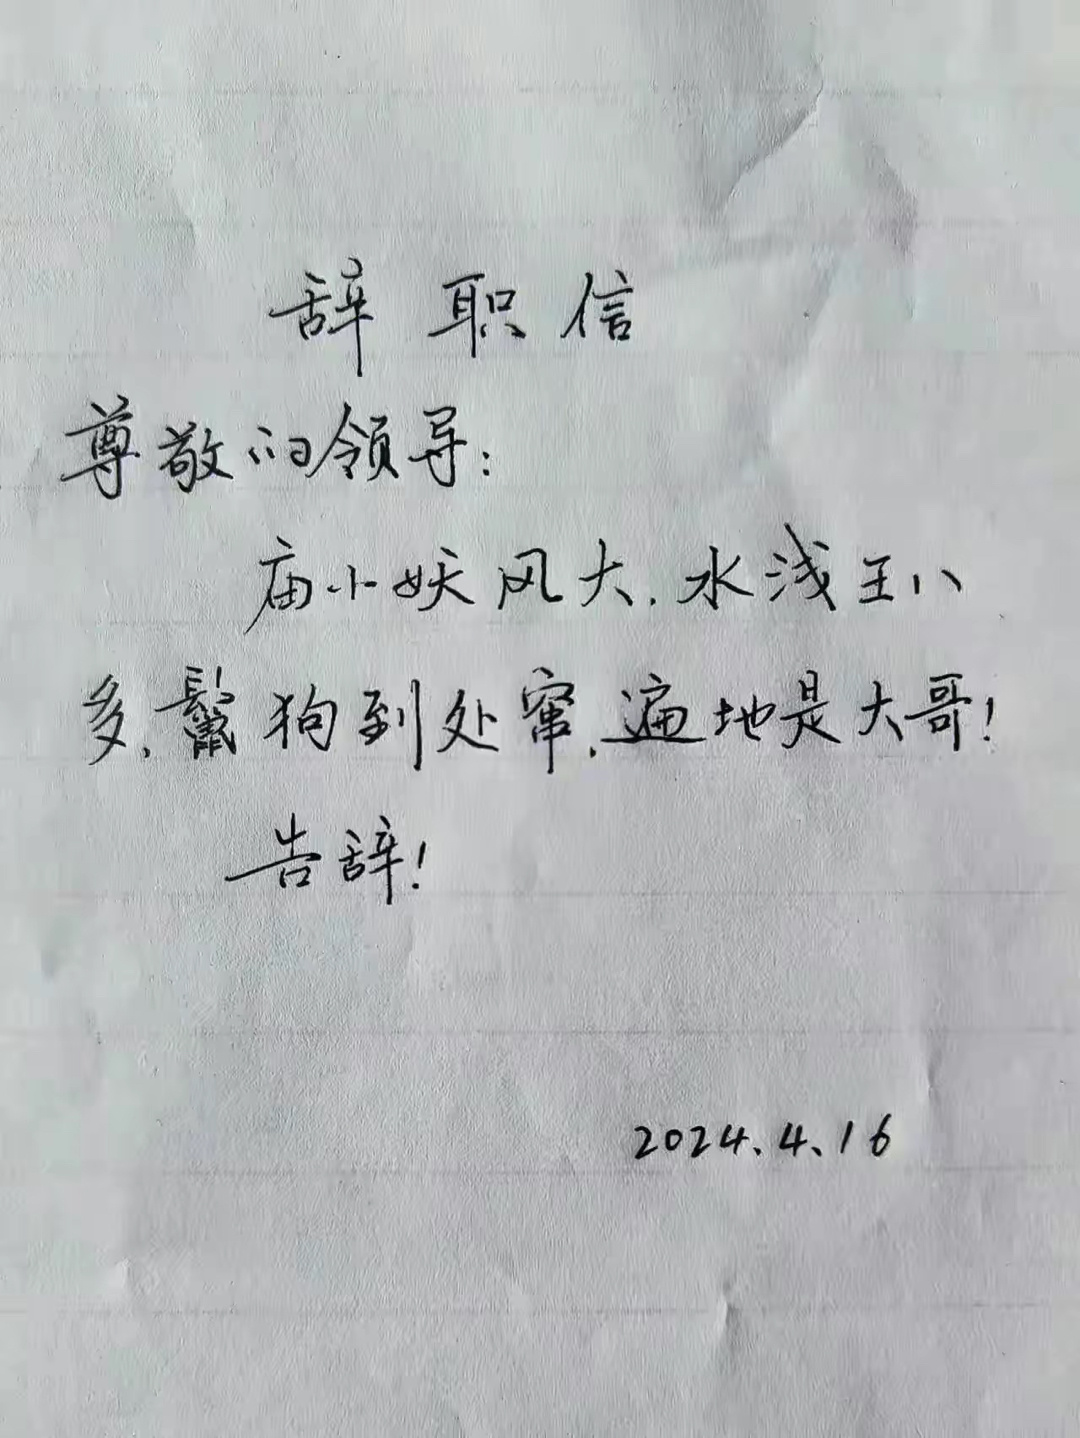 辞职信
尊敬的领导:
庙小妖风大.水浅王八
多.鬣狗到处窜.遍地是大哥!
告辞!
2024.4.16